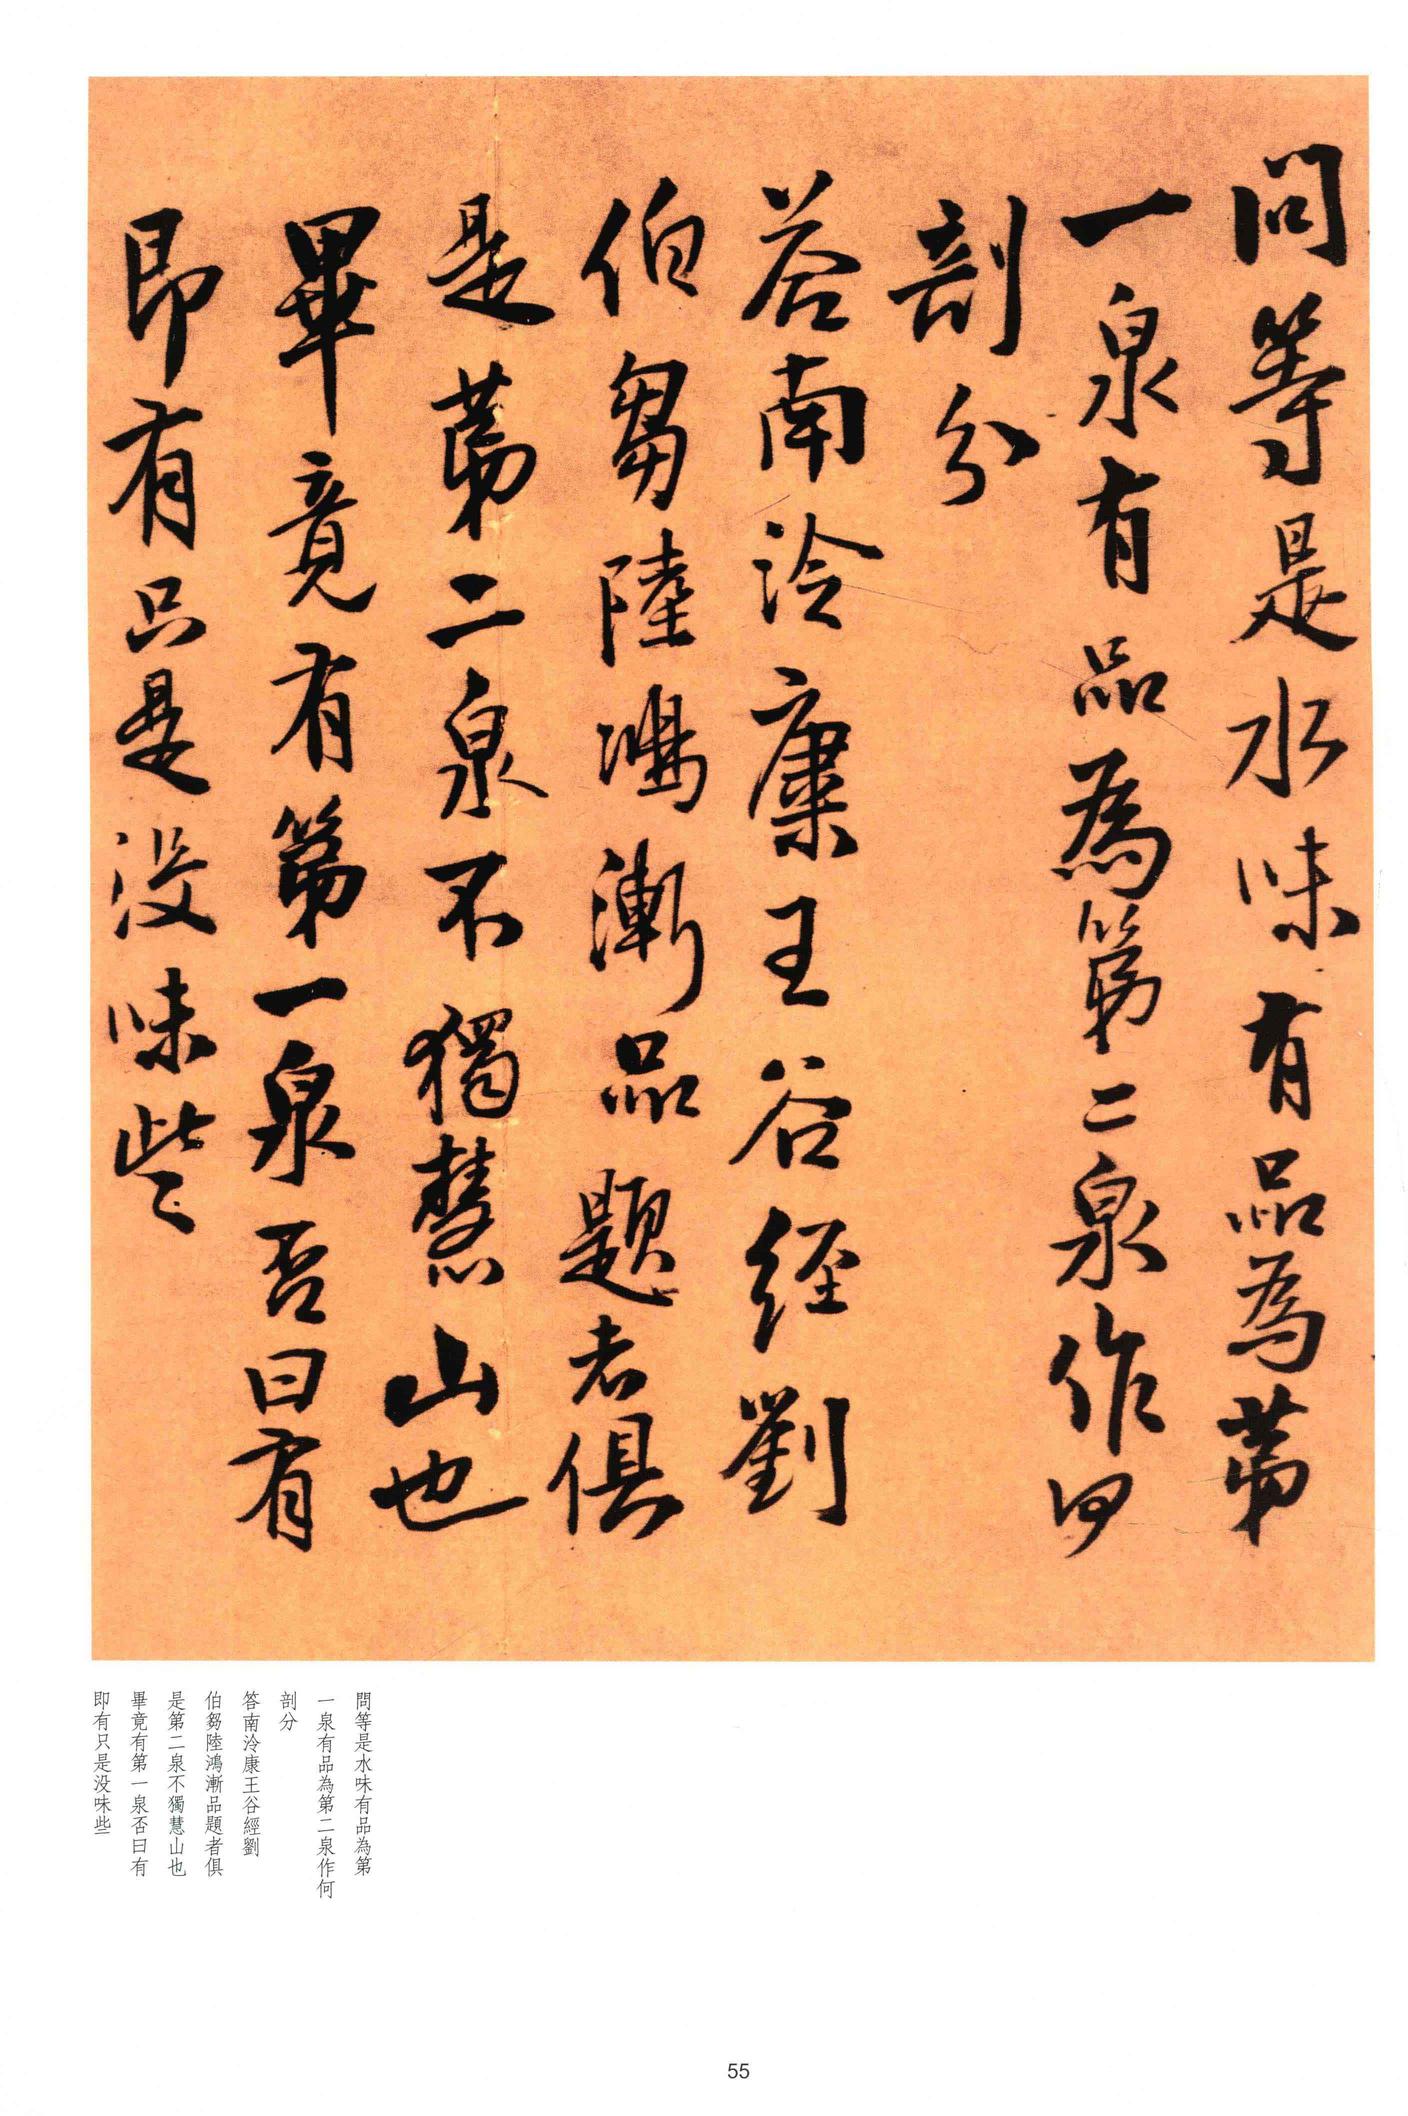 問等是水味有品為第
一泉有品為第二泉作何
剖分
荅南泠康王谷經劉
伯芻陸鴻漸品題者俱
是第二泉不獨慧山也
畢竟有第一泉否曰有
即有只是没味些
問等是水味有品為第
一泉有品為第二泉作何
剖分
答南泠康王谷經劉
伯芻陸鴻漸品題者俱
是第二泉不獨慧山也
畢竟有第一泉否曰有
即有只是没味些
55